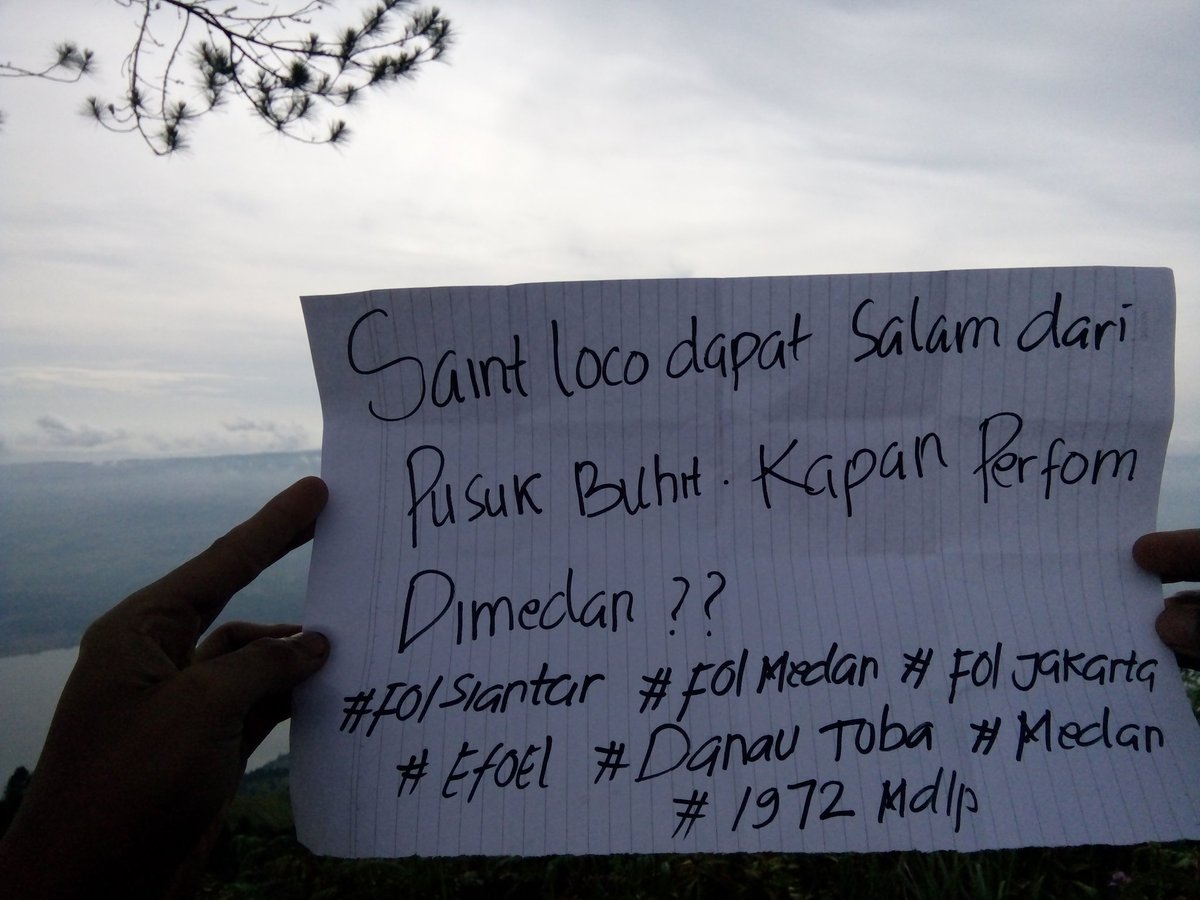 Saint loco dapat Salam dari
Pusuk Buhit. Kapan Perfom
Dimedan ??
#FOlSiantar #FOlMedan #FOlJakarta
#EfOEl #Danau Toba #Medan
#1972 Mdlp